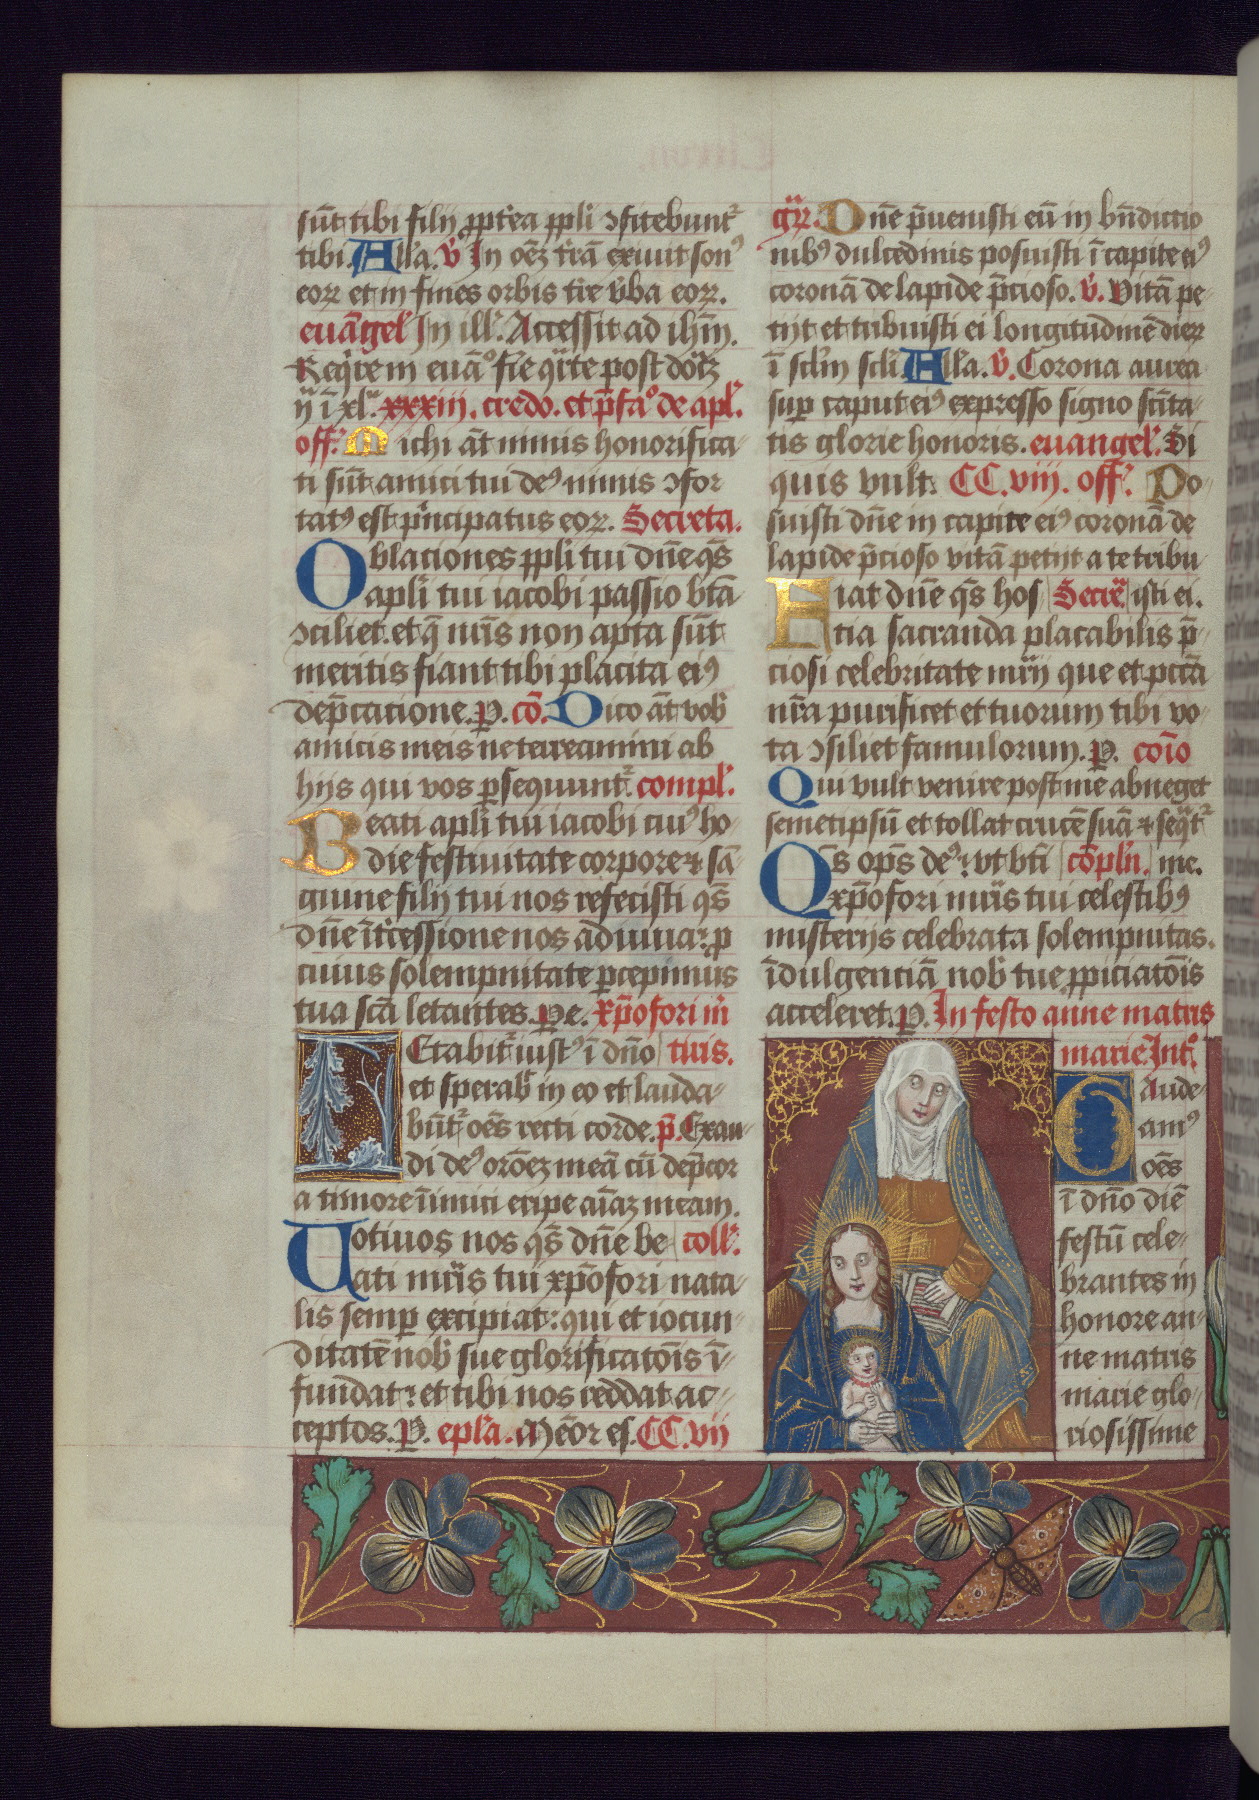 sūt tibi filij ꝓpterea ppli ɔfitebunt᷑
tibi. Alla. v̊ In oēꝫ terrā exiuit son⁹
eoꝝ et in fines orbis tre v̓ba eoꝝ.
euāgel̓ In ill̓. Accessit ad ihm̄.
Req̇re in euā° fīe q̇rte post
ij ī xl̓ xxxiij. credo. et p̄fa° de apl̓.
off̓. Michi āt nimis honorifica-
ti sūt amici tui de⁹ nimis ɔfor
tat⁹ est p̓ncipatus eoꝝ. Secreta.
Oblaciones ppli tui dn̄e qs̄
apl̓i tui iacobi passio btā
ɔciliet. et q̄ nr̄is non apta sūt
meritis fiant tibi placita ei⁹
dep̄cacione. P. cō. Dico āt vob̓
amicis meis ne terreamini ab
hijs qui vos ꝑsequunt᷑ compl̓.
Beati apl̓i tui iacobi cui⁹ ho-
die festiuitate corpore ⁊ sā-
guine filij tui nos refecisti qs̄
dn̄e īt̓cessione nos adiuua: ꝓ
cuius solempnitate ꝑcepimus
tua scā letantes. Pe. xp̄ofori mr̄
LEtabit᷑ iust⁹ ī dn̄o tiris.
et sperab̓ in eo et lauda-
būt᷑ oēs recti corde. p̄. Exau-
di de⁹ orōeꝫ meā cū dep̄cor
a timore īimici eripe aīaꝫ meam.
Uotiuos nos qs̄ dn̄e be coll̓.
ati mr̄is tui xp̄ofori nata-
lis semꝑ excipiat: qui et iocun-
ditatē nob̓ sue glorificatōis ī-
fundat: et tibi nos reddat ac-
ceptos. P. epl̓a. Memor es. CC.vii
gr̄. Dn̄e p̄uenisti eū in bn̄dictio
nib⁹ dulcedinis posuisti ī capite ei⁹
coronā de lapide p̄cioso. v̊. Vitā pe-
tijt et tribuisti ei longitudinē dieꝝ
ī scl̓m scl̓i. Alla. v̊. Corona aurea
suꝑ caput ei⁹ expresso signo scīta-
tis glorie honoris. euangel̓. Si
quis vult. CC.viij. off̓. Po-
suisti dn̄e in capite ei⁹ coronā de
lapide p̄cioso vitā petijt a te tribu
Fiat dn̄e qs̄ hos Secre᷑ isti ei.
tia sacranda placabilis p̄-
ciosi celebritate mr̄ij que et pctā
nr̄a purificet et tuorum tibi vo-
ta ɔsiliet famulorum. P. coīo
Qui vult venire post me abneget
semetipsū et tollat crucē suā ⁊ seq̄t᷑
Qs̄ op̄s de⁹: vt bt̄i cōpln̄. me.
xp̄ofori mr̄is tui celestib⁹
misterijs celebrata solempnitas.
īdulgenciā nob̓ tue ꝓpiciatōis
acceleret. P. In festo anne matris
marie. Int᷑°
Gaude-
am⁹
oēs
ī dn̄o diē
festū cele-
brantes in
honore an-
ne matris
marie glo-
riosissime